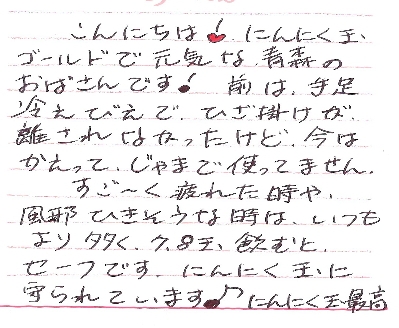 こんにちは! にんにく玉
ゴールドで元気な青森の
おばさんです! 前は、手足
冷えびえで、ひざ掛けが、
離されなかったけど、今は
かえって、じゃまで使ってません。
すご〜く疲れた時や、
風邪ひきそうな時は、いつも
より多く、7、8玉、飲むと、
セーフです。にんにく玉に
守られています!♪にんにく玉最高